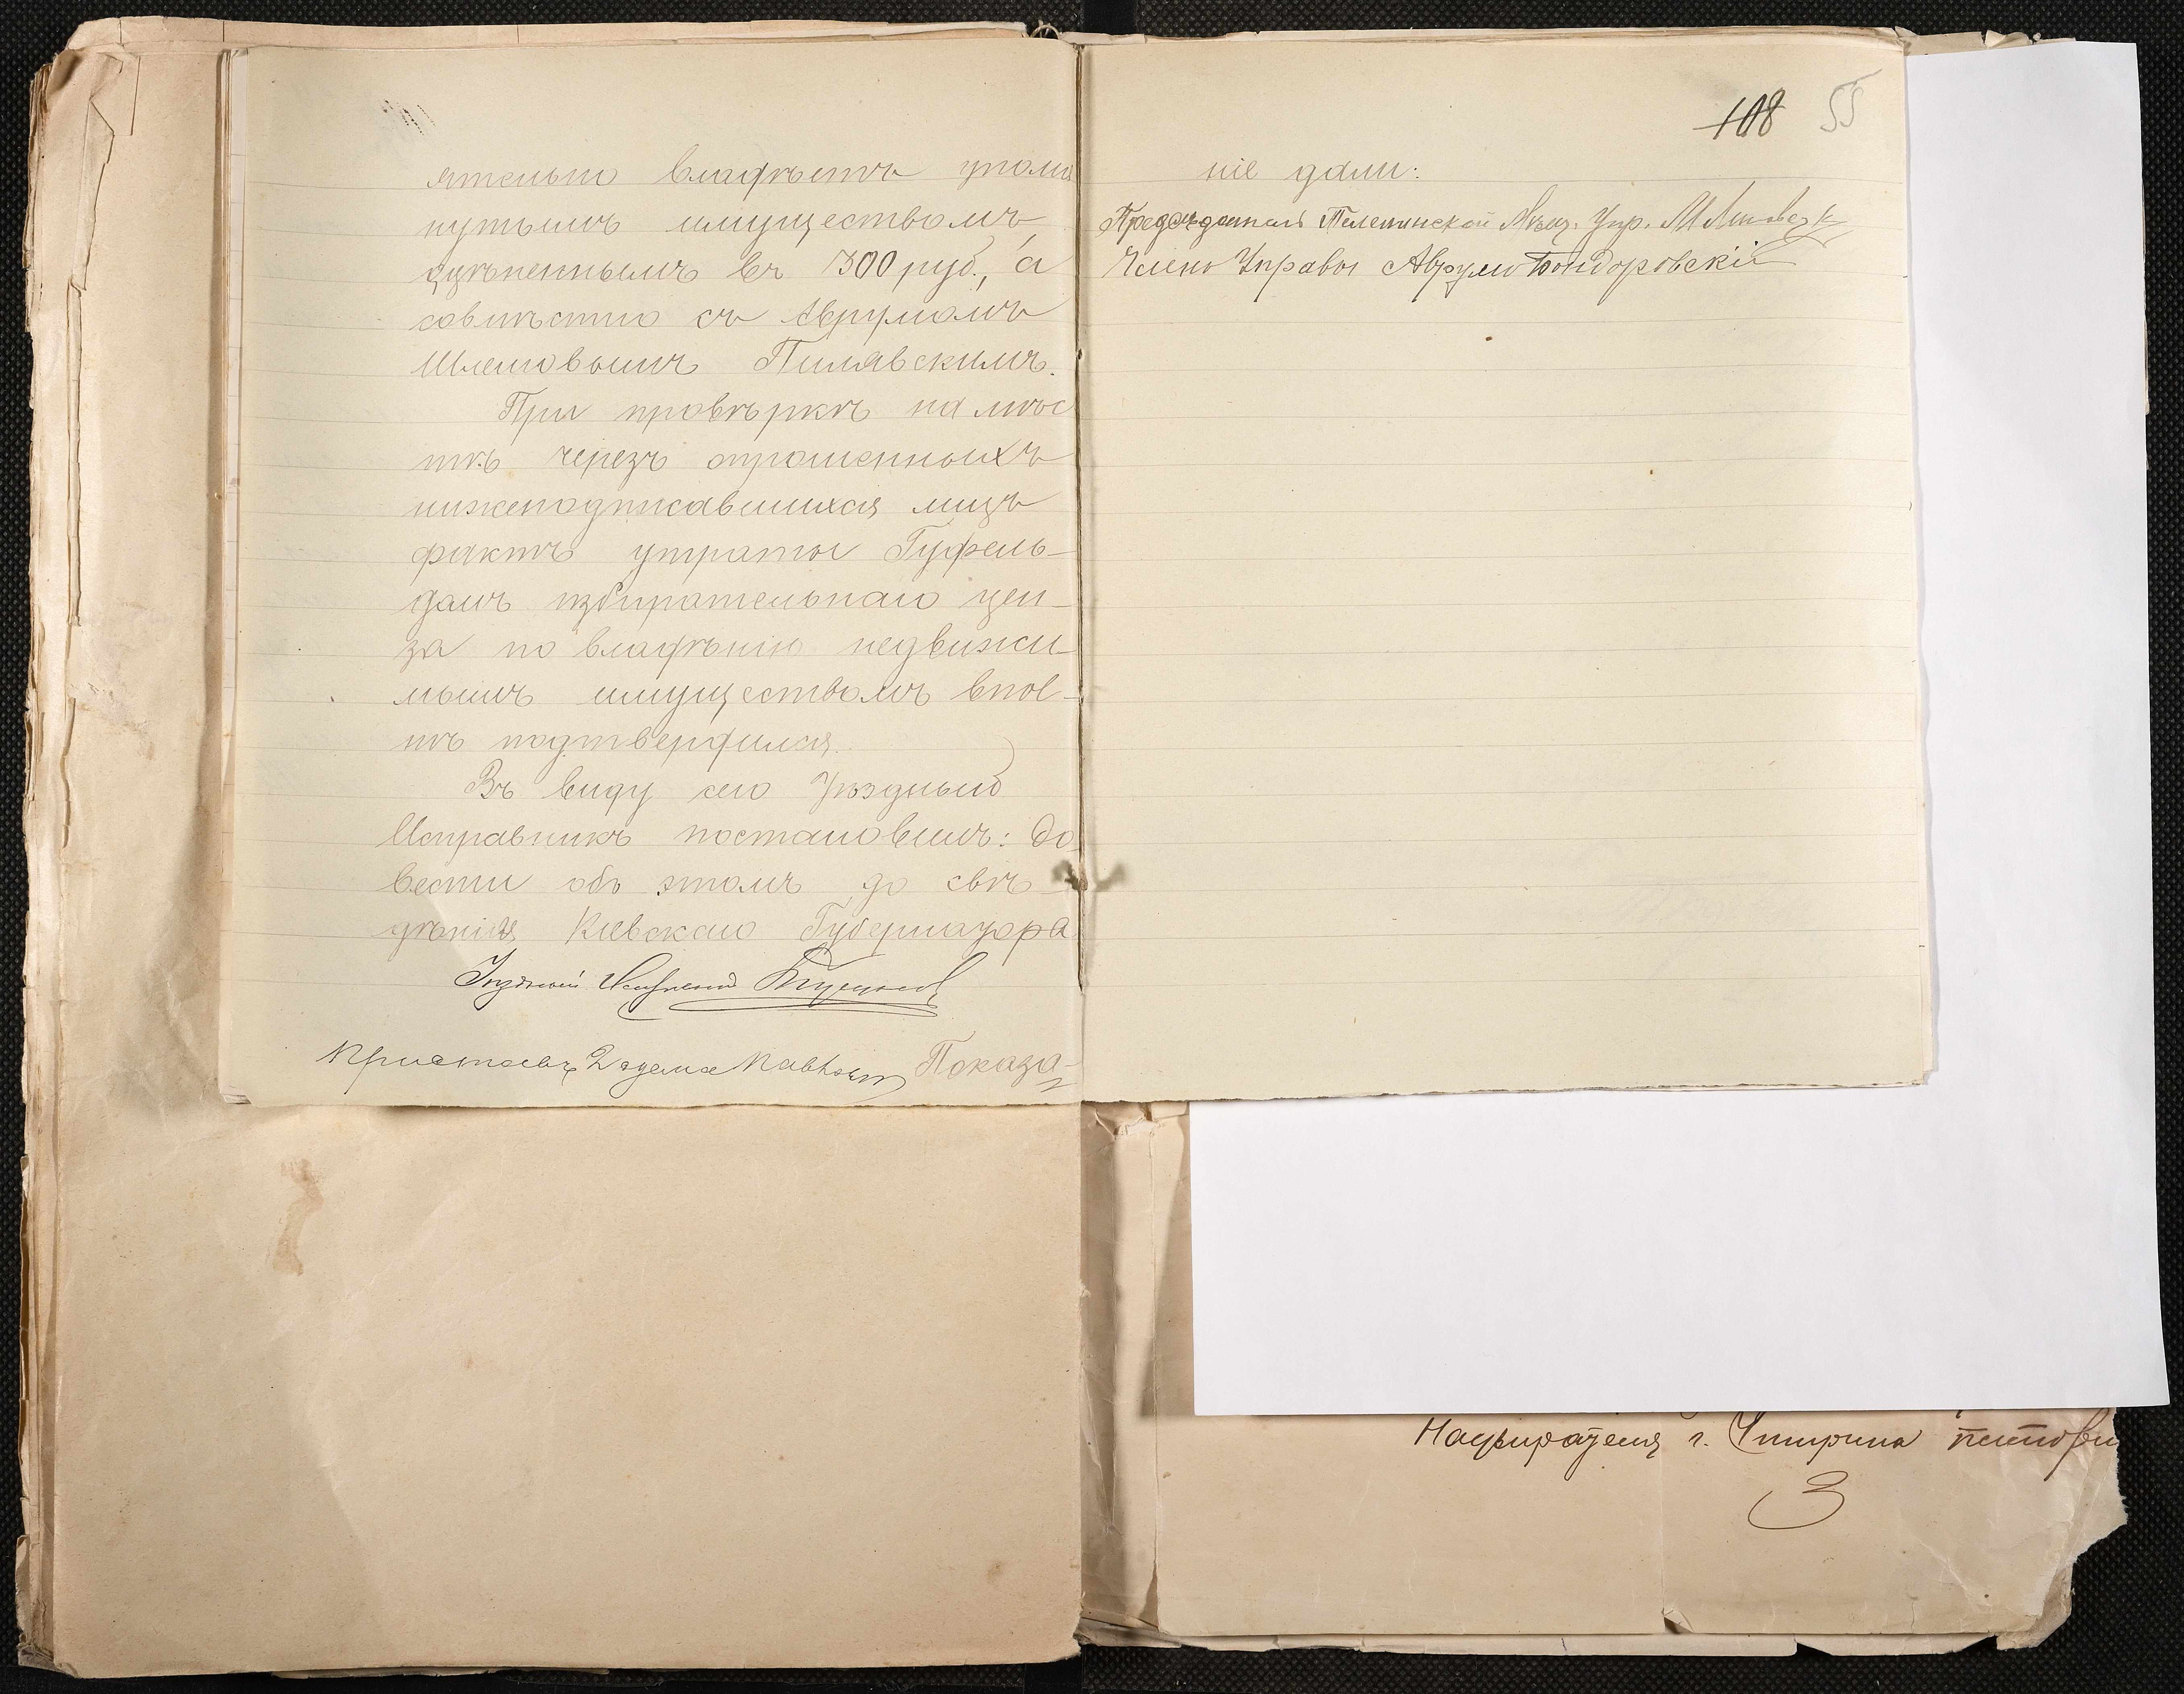 ятельно владѣетъ упомя
нутымъ имуществомъ,
оцѣненнымъ въ 300 руб., а
совмѣстно съ Аврумомъ
Шлемовымъ Пилявскимъ.
При провѣркѣ на мѣс
тѣ черезъ опрошенныхъ
нижеподписавшихся лицъ
фактъ утраты Гуфель-
домъ избирательнаго цен-
за по владѣнію недвижи-
мымъ имуществомъ впол-
нѣ подтвердился.
Въ виду сего Уѣздный
Исправникъ постановилъ: до
вести объ этомъ до свѣ-
дѣнія Кіевскаго Губернатора
Уѣздный Исправникъ
Показа-
108 55
ніе дали:
Предсѣдатель Мѣщ. Упр.
Членъ Управы Аврумъ Бондоровскій
Надзирателя г.